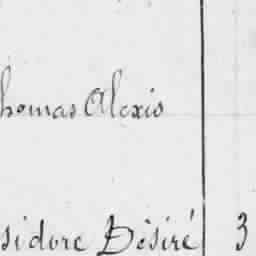 homas Alexis
sidore Désiré 3